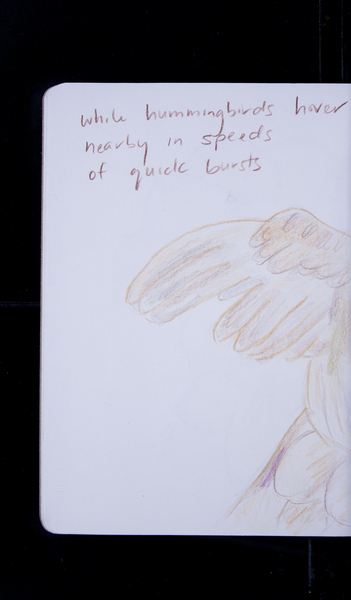 while hummingbirds hover
nearby in speeds
of quick bursts